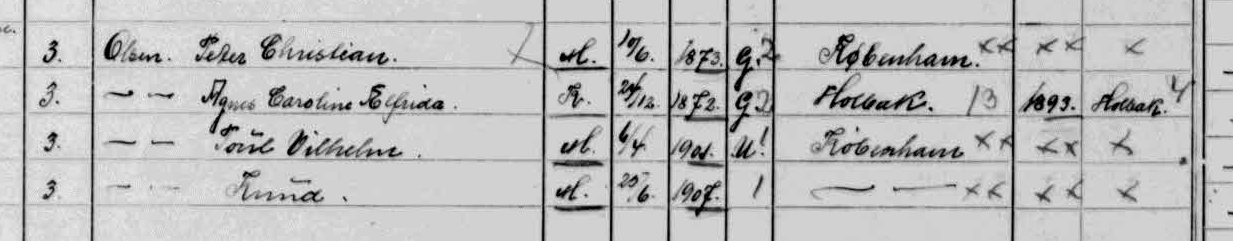 3. Olsen. Peter Christian. M. 10/6. 1873. G. 2 København. xx xx x
3. — — Agnes Caroline Elfrida. K. 24/12. 1872. G 2 Holbæk. 13 1893. Holbæk. 4
3. — — Poul Vilhelm. M. 6/4 1901. U. 1 København xx xx x
3. — — Knud. M. 25/6. 1907. 1 — — xx xx x